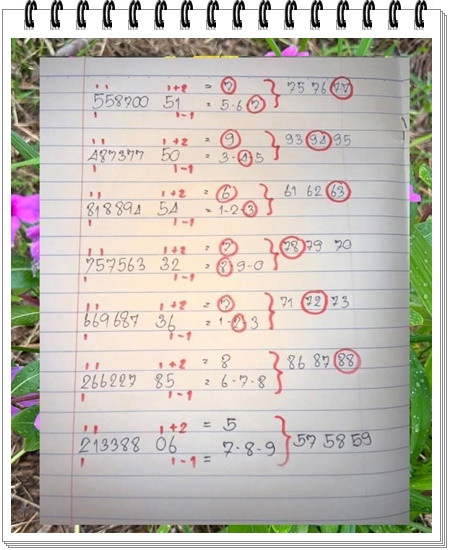 ı ı ı+2 = 7
75 76 77
558700 51 = 5-6 7
ı ı-1
ı ı ı+2 = 9
93 94 95
487377 50 = 3-4 5
ı ı-1
ı ı ı+2 = 6
61 62 63
818894 54 = 1-2-3
ı ı-1
ı ı ı+2 = 7
78 79 70
757563 32 = 8 9-0
ı ı-1
ı ı ı+2 = 7
71 72 73
669687 36 = 1-2 3
ı ı-1
ı ı ı+2 = 8
86 87 88
266227 85 = 6-7-8
ı ı-1
ı ı ı+2 = 5
57 58 59
213388 06 7-8-9
ı ı-1 =